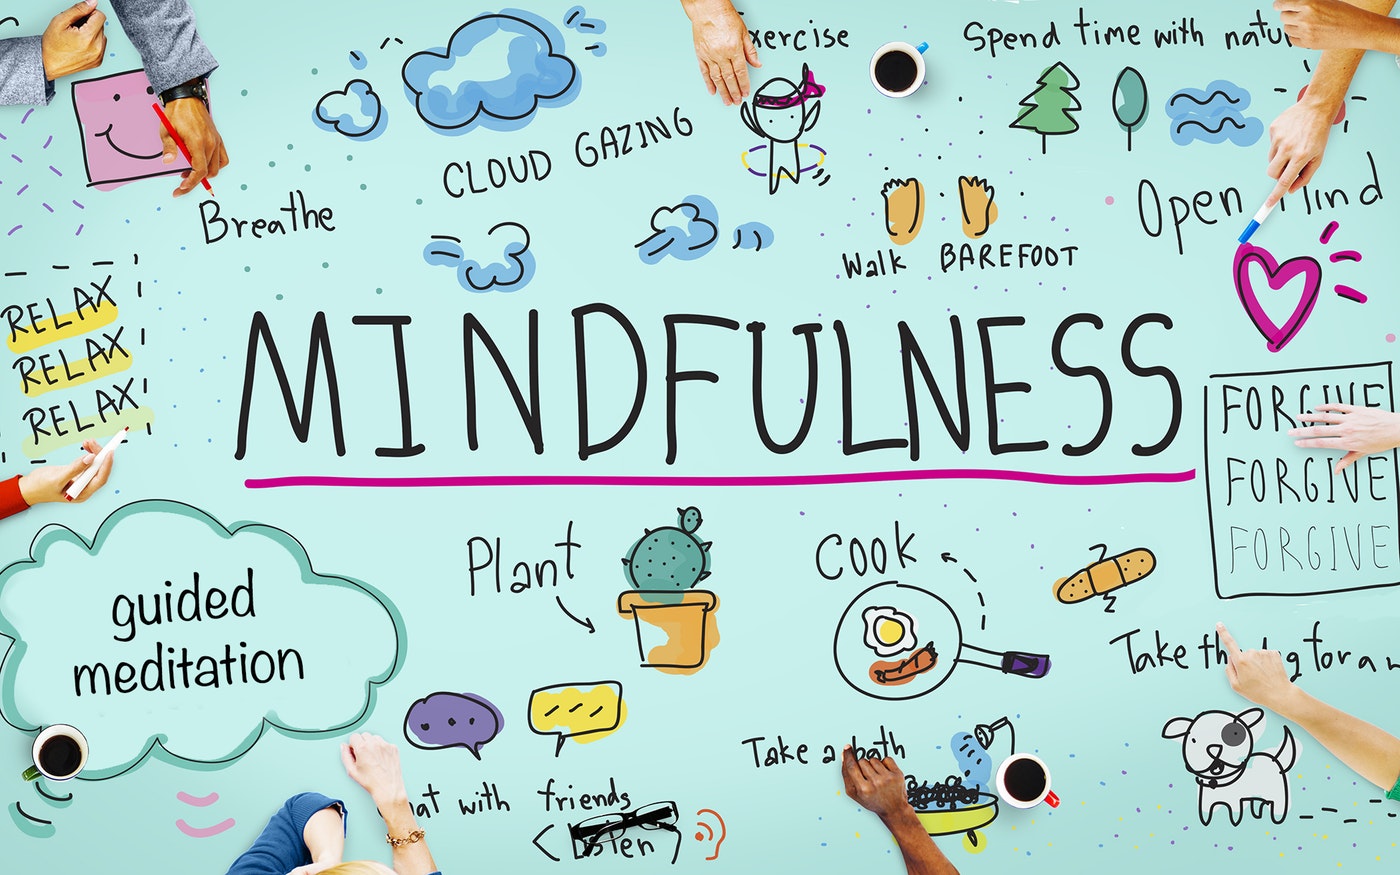 xercise
Spend time with natu
CLOUD GAZING
Breathe
Open Mind
Walk BAREFOOT
RELAX
RELAX
RELAX
MINDFULNESS
FORGIVE
FORGIVE
FORGIVE
guided
meditation
Plant
Cook
Take for a
Take a bath
at with friends
(Listen)